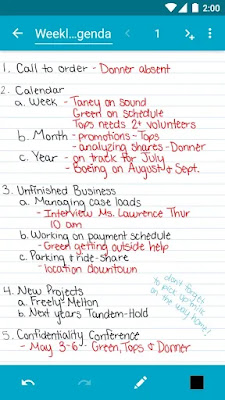 2:00
Weekl...genda
1
1. Call to order - Donner absent
2. Calendar
a. Week - Taney on sound
Green on schedule
Tops needs 2+ volunteers
b. Month - promotions - Tops
- analyzing shares - Donner
c. Year - on track for July
- Boeing on August & Sept.
3. Unfinished Business
a. Managing case loads
- Interview Ms. Lawrence Thur
10 am
b. Working on payment schedule
- Green getting outside help
c. Parking & ride-share
- location downtown
don't forget
to pick up milk
on the way home!
4. New Projects
a. Freely - Melton
b. Next years Tandem - Hold
5. Confidentiality Conference
- May 3-6 - Green, Tops & Donner